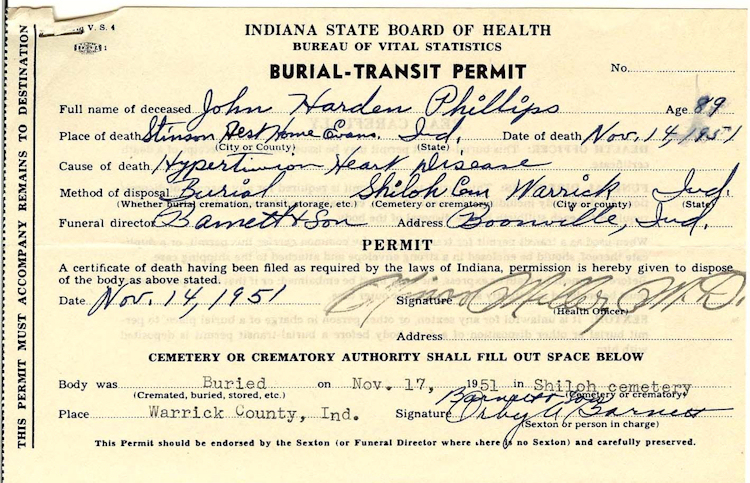 V. S. 4
INDIANA STATE BOARD OF HEALTH
BUREAU OF VITAL STATISTICS
BURIAL-TRANSIT PERMIT No.
Full name of deceased John Harden Phillips Age 89
Place of death Stinson Rest Home Evans. Ind. Date of death Nov. 14, 1951
(City or County) (State)
Cause of death Hypertension Heart Disease
Method of disposal Burial Shiloh Cem Warrick Ind.
(Whether burial cremation, transit, storage, etc.) (Cemetery or crematory) (City or county) (State)
Funeral director Barnett & Son Address Boonville, Ind.
PERMIT
A certificate of death having been filed as required by the laws of Indiana, permission is hereby given to dispose
of the body as above stated.
Date Nov. 14, 1951 Signature Miller M.D.
(Health Officer)
Address
CEMETERY OR CREMATORY AUTHORITY SHALL FILL OUT SPACE BELOW
Body was Buried on Nov. 17, 1951 in Shiloh cemetery
(Cremated, buried, stored, etc.) (Cemetery or crematory)
Barnett & Son
Place Warrick County, Ind. Signature Orby A Barnett
(Sexton or person in charge)
This Permit should be endorsed by the Sexton (or Funeral Director where there is no Sexton) and carefully preserved.
THIS PERMIT MUST ACCOMPANY REMAINS TO DESTINATION